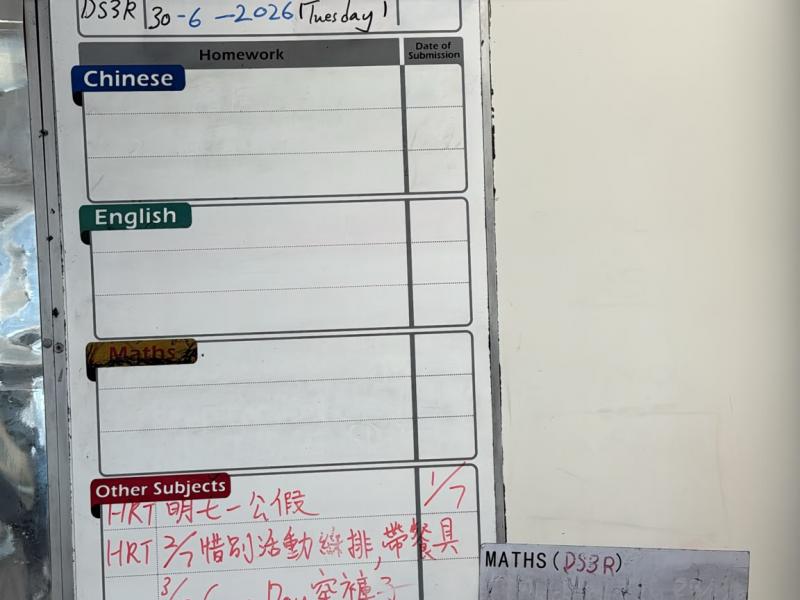 DS3R 30-6-2026 (Tuesday)
Homework Date of Submission
Chinese
English
Maths
Other Subjects
HRT 明七一公假 1/7
HRT 2/7 惜別活動綵排,帶餐具
3/ Day 穿褲子
MATHS (DS3R)